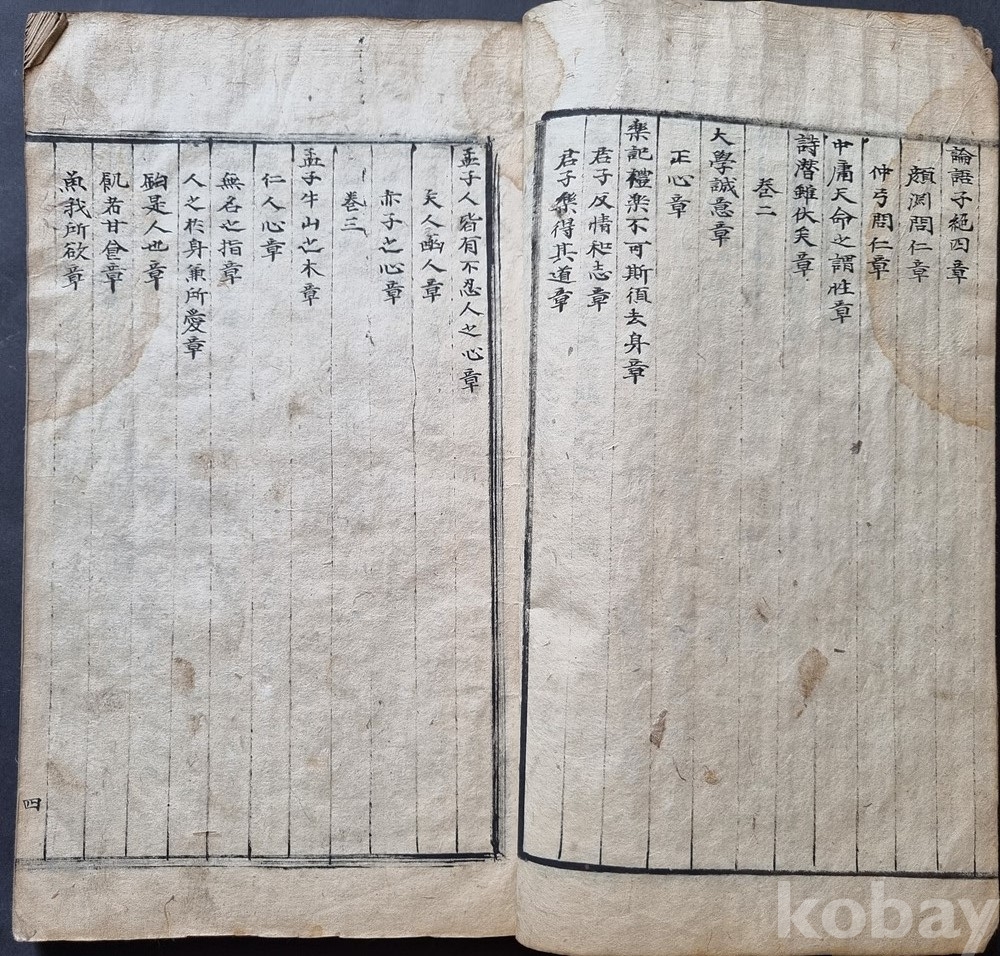 論語子絕四章
顔淵問仁章
仲弓問仁章
中庸天命之謂性章
詩潛雖伏矣章
卷二
大學誠意章
正心章
樂記禮樂不可斯須去身章
君子反情和志章
君子樂得其道章
孟子人皆有不忍人之心章
矢人函人章
赤子之心章
卷三
孟子牛山之木章
仁人心章
無名之指章
人之於身兼所愛章
鈞是人也章
飢者甘食章
魚我所欲章
四
kobay